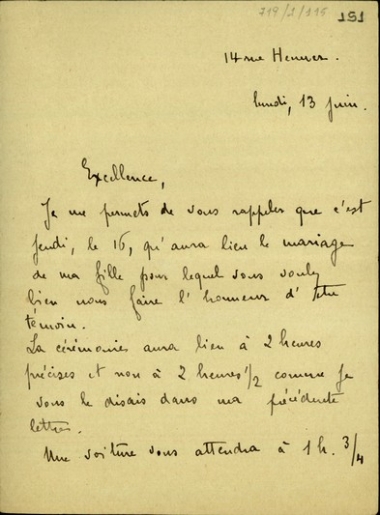 719/1/115
191
14 rue
lundi, 13 juin.
Excellence,
Je me permets de vous rappeler que c'est
jeudi, le 16, qu'aura lieu le mariage
de ma fille pour lequel vous voulez
bien nous faire l'honneur d'être
témoin.
La cérémonie aura lieu à 2 heures
précises et non à 2 heures 1/2 comme je
vous le disais dans ma précédente
lettre.
Une voiture vous attendra à 1 h. 3/4